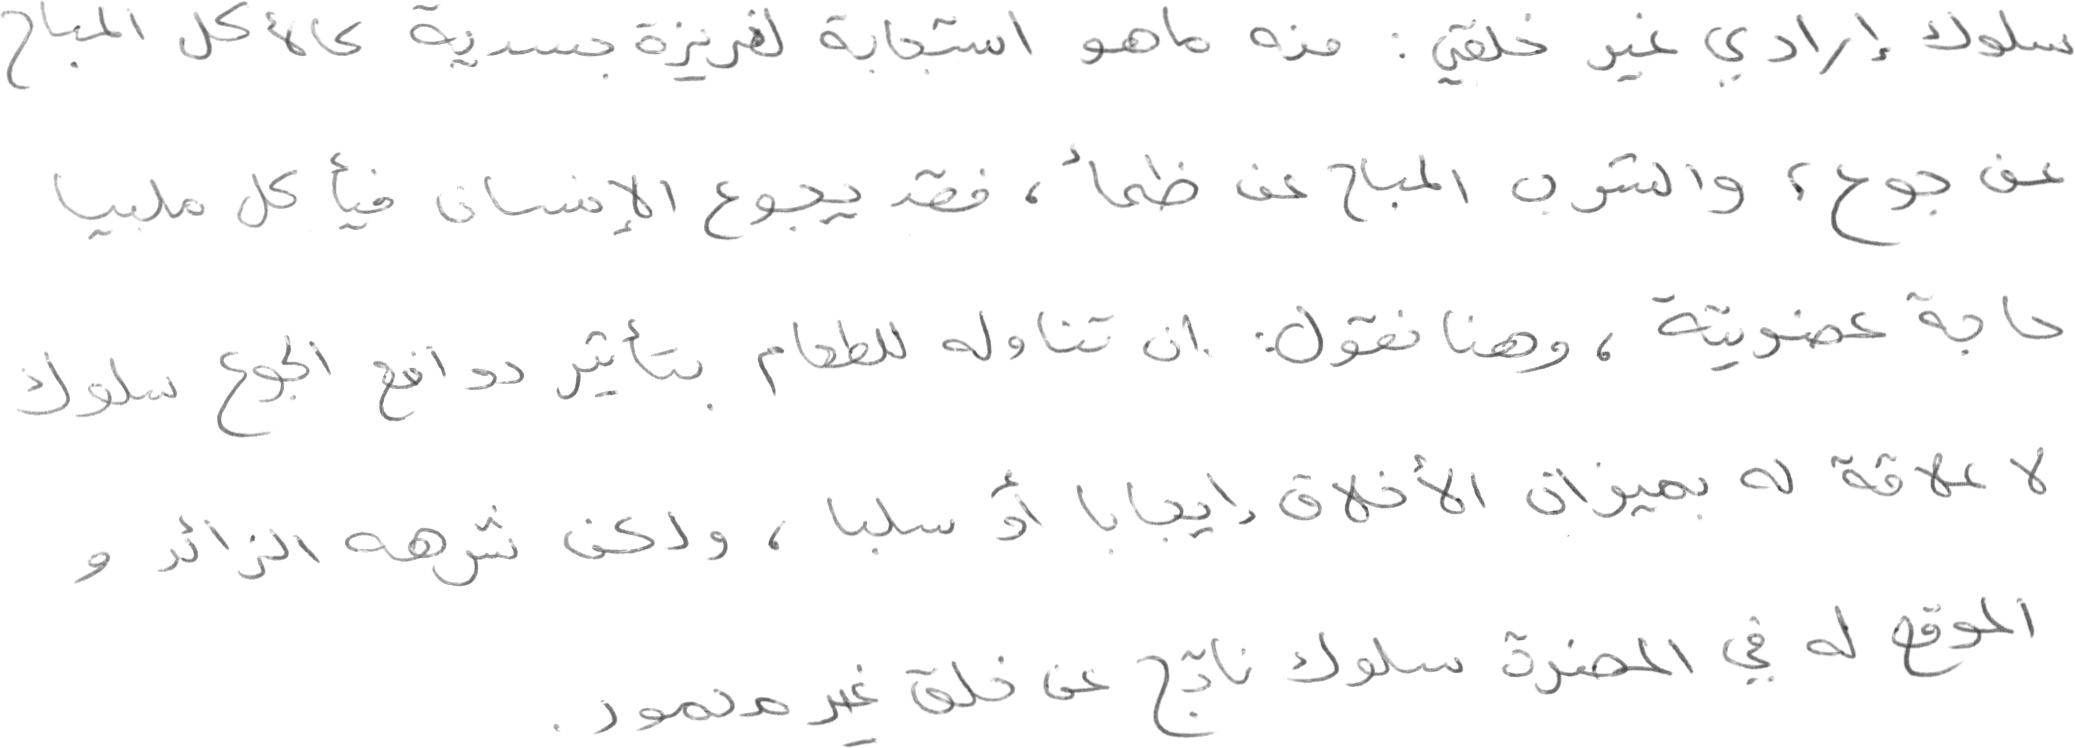 سلوك إرادي غير خلقي : منه ماهو استجابة لغريزة جسدية كالأكل المباح
عن جوع ، والشرب المباح عن ظمأ ، فقد يجوع الإنسان فيأكل ملبيا
حاجة عضويته ، وهنا نقول : ان تناوله للطعام بتأثير دوافع الجوع سلوك
لا علاقة له بميزان الأخلاق إيجابا أو سلبا ، ولكن شرهه الزائد و
الموقع له في المضرة سلوك ناتج عن خلق غير محمود .